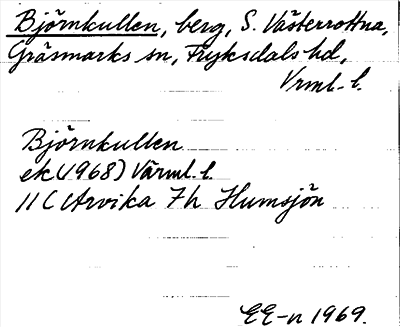 Björnkullen, berg, S. Västerrottna,
Gräsmarks sn, Fryksdals hd,
Vrml. l.
Björnkullen
ek (1968) Värml. l.
11 C Arvika 7h Humsjön
EE-n 1969.